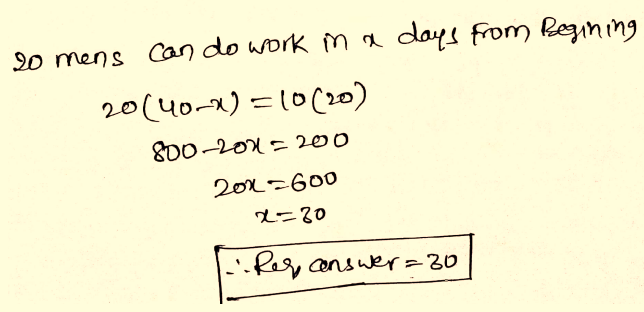 20 mens can do work in x days from Begining
20(40-x) = 10(20)
800-20x = 200
20x = 600
x = 30
∴ Req answer = 30